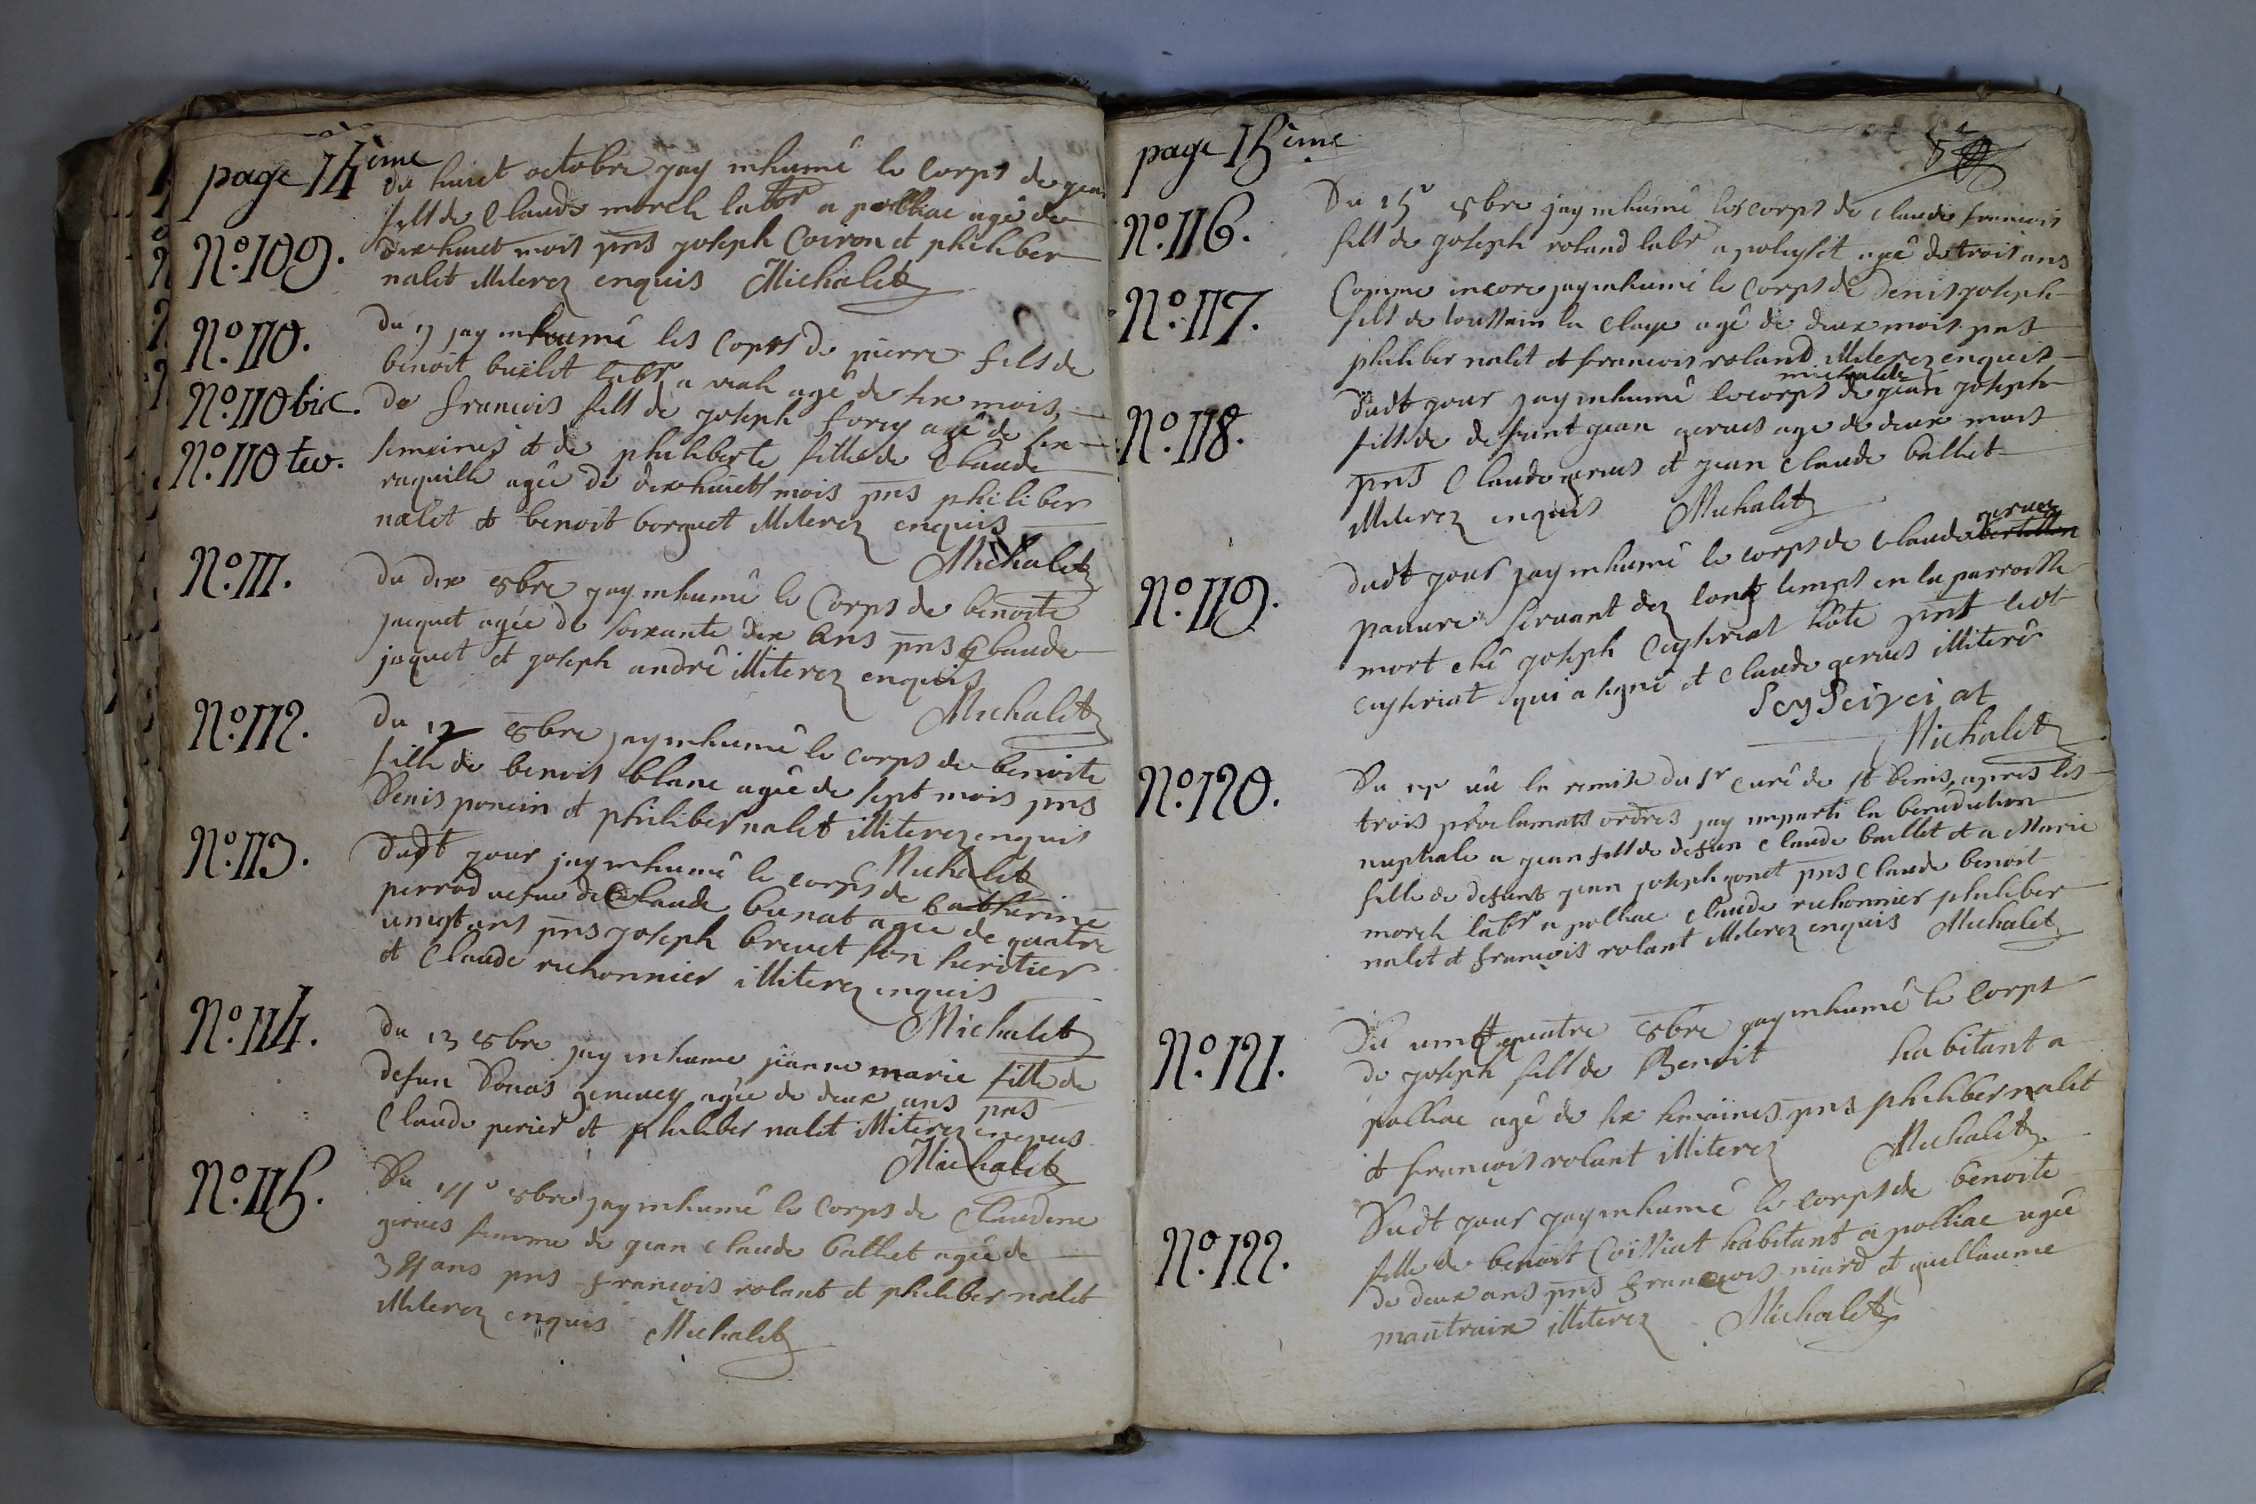 page 14ème
N.º 109.
du huict octobre jay inhumé le corps de jean
fils de Claude morel labr a polliac agé de
dix huict mois pns joseph Coiron et philiber
nalet illiterez enquis Michalet
N.º 110.
du 9 jay inhumé les copts de pierre fils de
benoit buelet labr a viah agé de six mois,
N.º 110 bis.
de francois fils de joseph forey agé de six
N.º 110 ter.
semaines et de philiberte fille de Claude
raquille agée de dix huict mois pns philiber
nalet et benoit borquet illiterez enquis
Michalet
N.º 111.
du dix 8bre jay inhumé le Corps de benoite
jacquet agée de soixante dix ans pns Claude
jaquet et joseph andrê illiterez enquis
Michalet
N.º 112.
du 12 8bre jay inhumé le corps de benoite
fille de benoit blanc agée de sept mois pns
Denis poncin et philiber nalet illiterez enquis
Michalet
N.º 113.
dudt jour jay inhumé le corps de Catherine
perrod vefue de Claude bunat agée de quatre
vingt ans pns joseph breuet son heritier
et Claude richonnier illiterez enquis
Michalet
N.º 114.
du 13 8bre jay inhumé jeanne marie fille de
defun Donas geneuey agée de deux ans pns
Claude perier et philiber nalet illiterez enquis
Michalet
N.º 115.
Du 14e 8bre jay inhumé le Corps de Claudine
gerues femme de jean Claude ballet agée de
34 ans pns francois rolant et philiber nalet
illiterez enquis Michalet
page 15ème
N.º 116.
Du 15e 8bre jay inhumé les corps de Claude francois
fils de joseph roland labr a poleysit agé de trois ans
N.º 117.
Comme incore jay inhumé le Corps de Denis joseph
fils de toussain la Claye agé de deux mois pns
philiber nalet et francois roland illiterez enquis
michalet
N.º 118.
Dudt jour jay inhumé le corps de jean joseph
fils de defunt jean gerues age de deux mois
pns Claude gerues et jean Claude ballet
illiterez enquis Michalet
N.º 119.
dudt jour jay inhumé le corps de Claude bertillon gerues
pauure seruant dez long temps en la parroisse
mort ché joseph Ceyseriat hôte pnt ledt
ceyseriat qui a signé et Claude gerues illiteré
Seyseizeiat
Michalet
N.º 120.
Du 25 uü la remise du Sr curé de st Denis, apres les
trois proclamats ordres jay imparti la benediction
nuptiale a jean fils de defun Claude baillet et a Marie
fille de defunt jean joseph gonet pns Claude benoit
morel labr a polliac Claude richonnier philiber
nalet et francois rolant illiterez enquis Michalet
N.º 121.
Du vint quatre 8bre jay inhumé le Corps
de joseph fils de Benoit habitant a
polliac agé de six semaines pns philiber nalet
et françois rolant illiterez Michalet
N.º 122.
Dudt jour jay inhumé le corps de benoite
fille de benoit Coissiat habitant a polliac agée
de deux ans pns francois niard et guillaume
mantraix illiterez Michalet